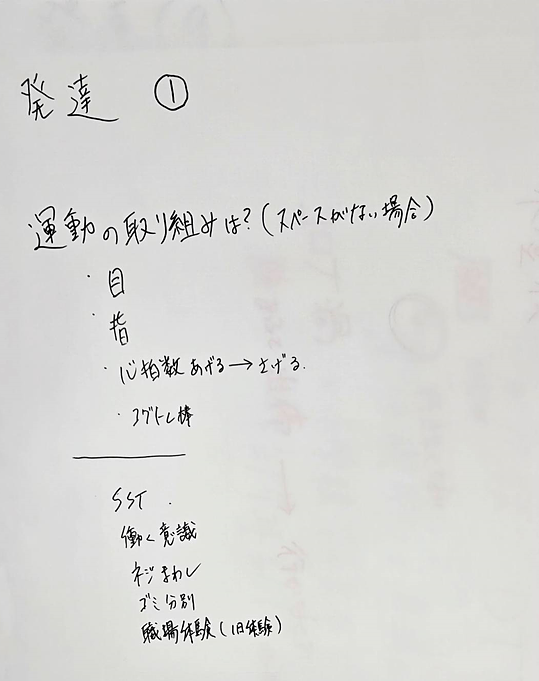 発達 ①
運動の取り組みは?(スペースがない場合)
・目
・指
・心拍数あげる→さげる.
・コグトレ棒
SST.
働く意識
ネジまわし
ゴミ分別
職場体験(1日体験)